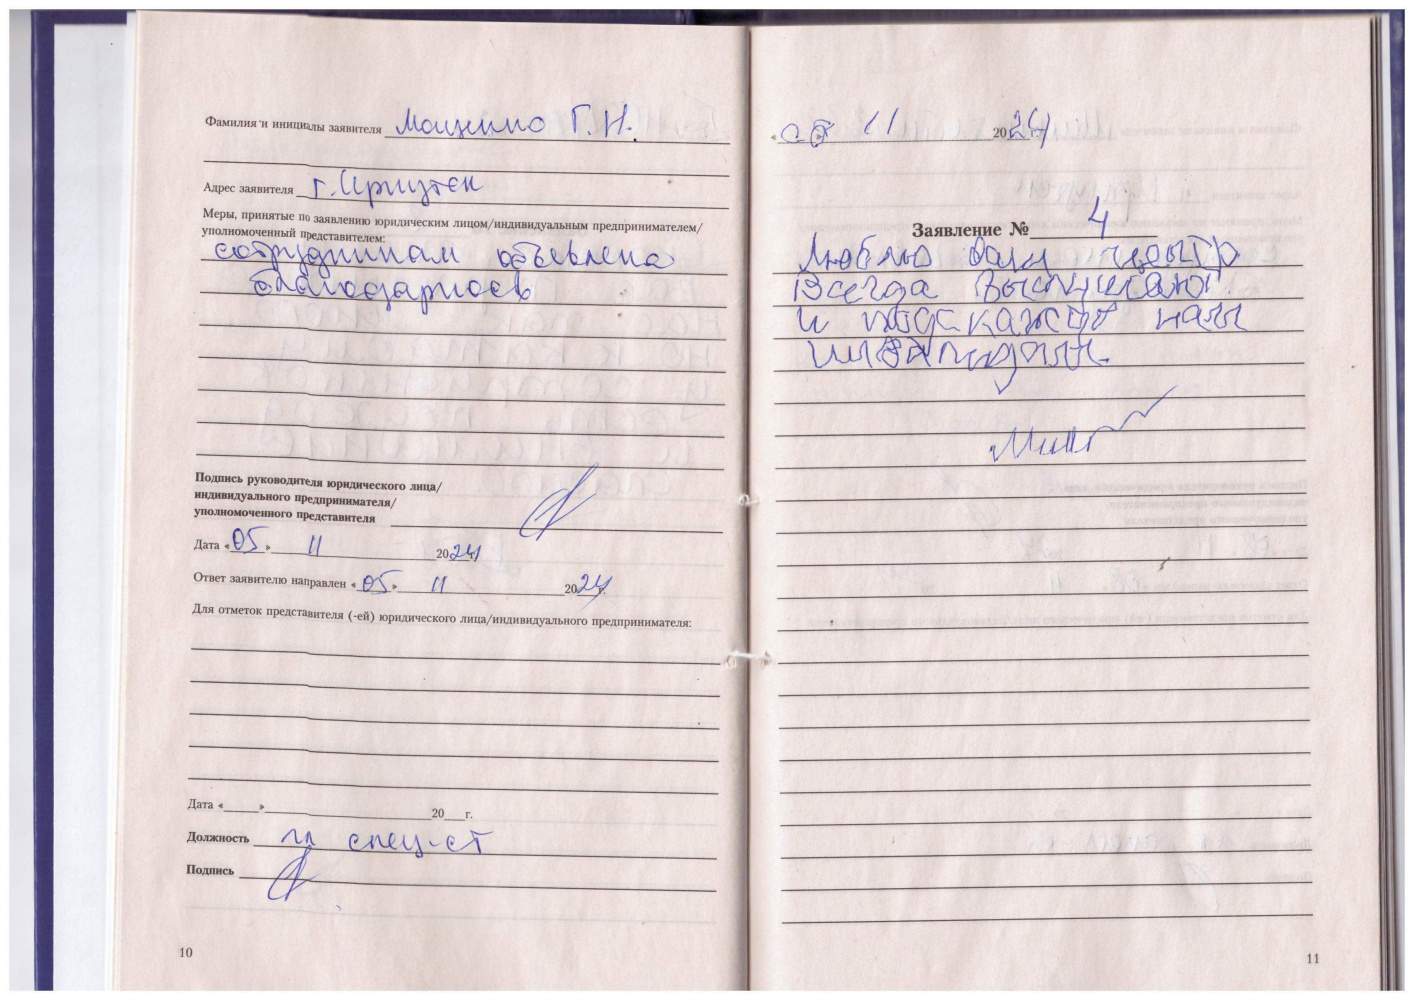 Фамилия и инициалы заявителя Мощенко Г. Н.
Адрес заявителя г. Иркутск
Меры, принятые по заявлению юридическим лицом/индивидуальным предпринимателем/
уполномоченный представителем:
сотрудникам объявлена
благодарность
Подпись руководителя юридического лица/
индивидуального предпринимателя/
уполномоченного представителя
Дата «05» 11 2024 г.
Ответ заявителю направлен «05» 11 2024 г.
Для отметок представителя (-ей) юридического лица/индивидуального предпринимателя:
Дата «____»____ 20___г.
Должность гл спец-ст
Подпись
10
« 05 11 2024 г.
Заявление № 4
Люблю Ваш центр
Всегда Выслушают
и подскажут нам
инвалидам.
11